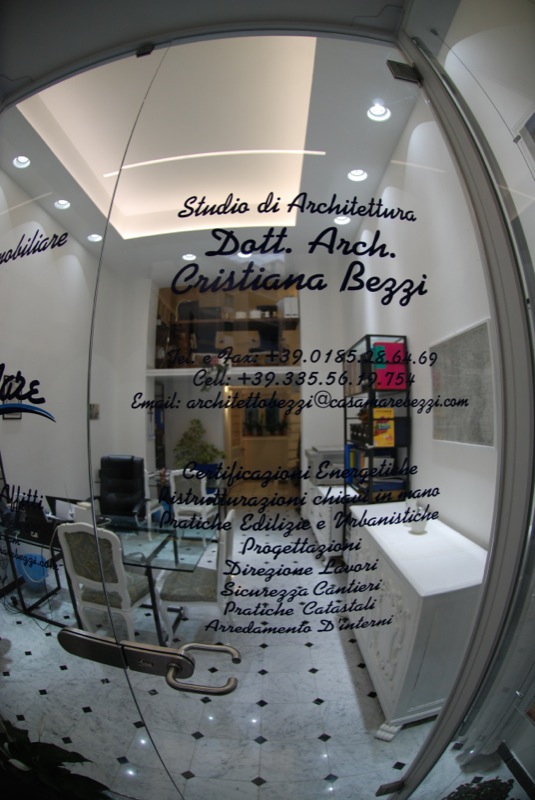 Studio di Architettura
Dott. Arch.
Cristiana Bezzi
Tel. e Fax: +39.0185.28.64.69
Cell: +39.335.56.19.754
Email: architettobezzi@casamarebezzi.com
Certificazioni Energetiche
Ristrutturazioni chiavi in mano
Pratiche Edilizie e Urbanistiche
Progettazioni
Direzione Lavori
Sicurezza Cantieri
Pratiche Catastali
Arredamento D'interni
mobiliare
Mare
Affitti